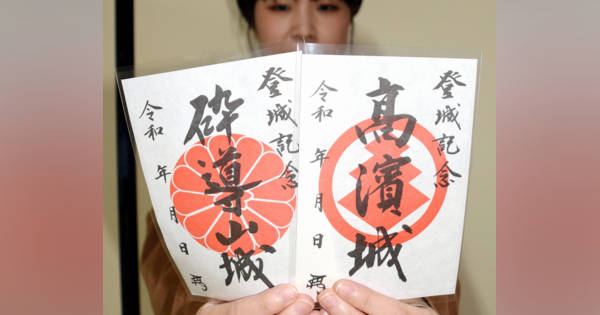 登城記念
高濱城
令和 年 月 日
登城記念
砕導山城
令和 年 月 日